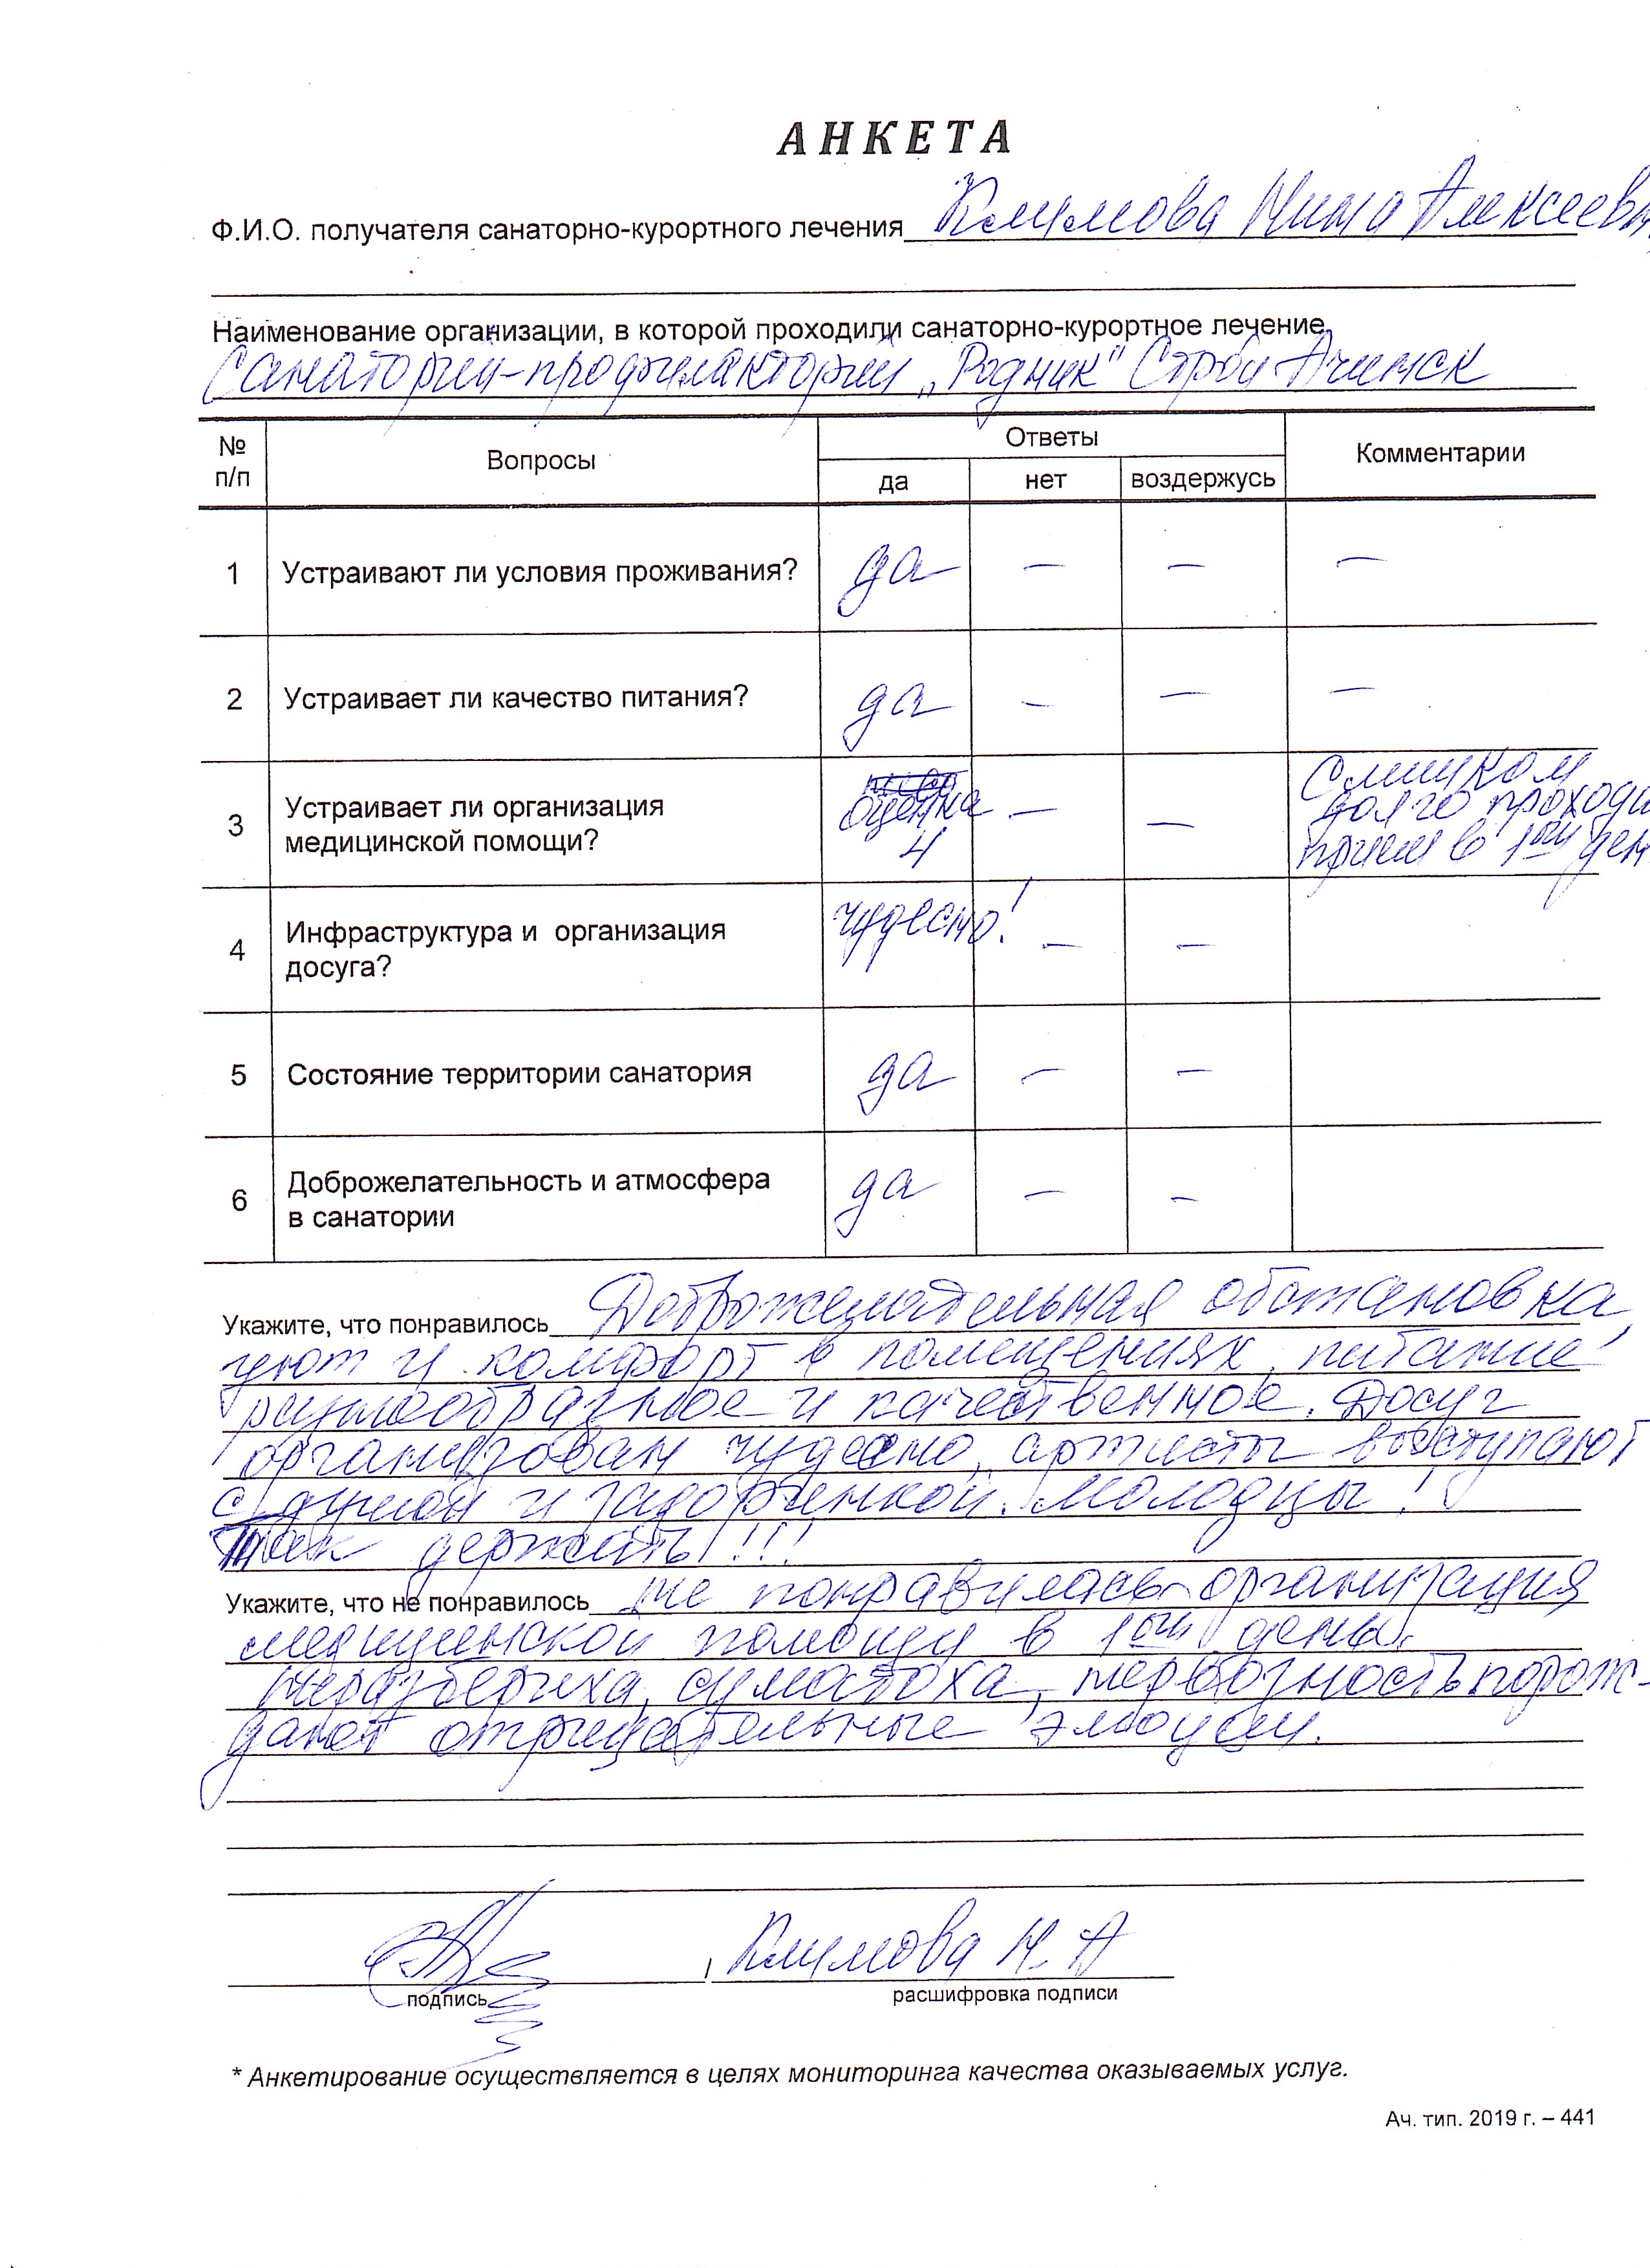 АНКЕТА
Ф.И.О. получателя санаторно-курортного лечения Климова Нина Алексеевн
Наименование организации, в которой проходили санаторно-курортное лечение
Санаторий-профилакторий „Родник" Ачинск
№ п/п Вопросы Ответы Комментарии
да нет воздержусь
1 Устраивают ли условия проживания? да – – –
2 Устраивает ли качество питания? да – – –
3 Устраивает ли организация медицинской помощи? оценка 4 – – Слишком долго проходи прием в 1ый ден
4 Инфраструктура и организация досуга? чудесно! – –
5 Состояние территории санатория да – –
6 Доброжелательность и атмосфера в санатории да – –
Укажите, что понравилось Доброжелательная обстановка,
уют и комфорт в помещениях, питание
разнообразное и качественное. Досуг
организован чудесно, артисты выступают
с душой и задоринкой. Молодцы!
Так держать!!!
Укажите, что не понравилось не понравилась организация
медицинской помощи в 1ый день.
Неразбериха, суматоха, нервозность порож-
дают отрицательные эмоции.
Климова Н.А
подпись расшифровка подписи
* Анкетирование осуществляется в целях мониторинга качества оказываемых услуг.
Ач. тип. 2019 г. – 441